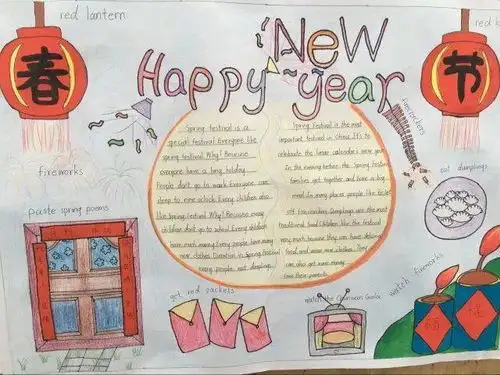 red lantern
New
Happy year
red l
春
节
Spring festival is a
special festival. Everyone like
spring festival. Why? Because
everyone have a long holiday.
People don't go to work. Everyone can
sleep to nine o'clock. Every children also
like Spring festival. Why? Because every
children don't go to school. Every children
have much money. Every people have many
new clothes. Everytime in Spring festival
every people eat dumplings.
Spring Festival is the most
important festival in China. It's to
celebrate the lunar calendar's new year.
In the evening before the Spring Festival
families get together and have a big
meal. In many places people like to set
off firecrackers. Dumplings are the most
traditional food. Children like the festival
very much, because they can have delicious
food and wear new clothes. They
can also get some money
from their parents.
firecrackers
fireworks
eat dumplings
paste spring poems
get red packets
watch the
watch fireworks
福